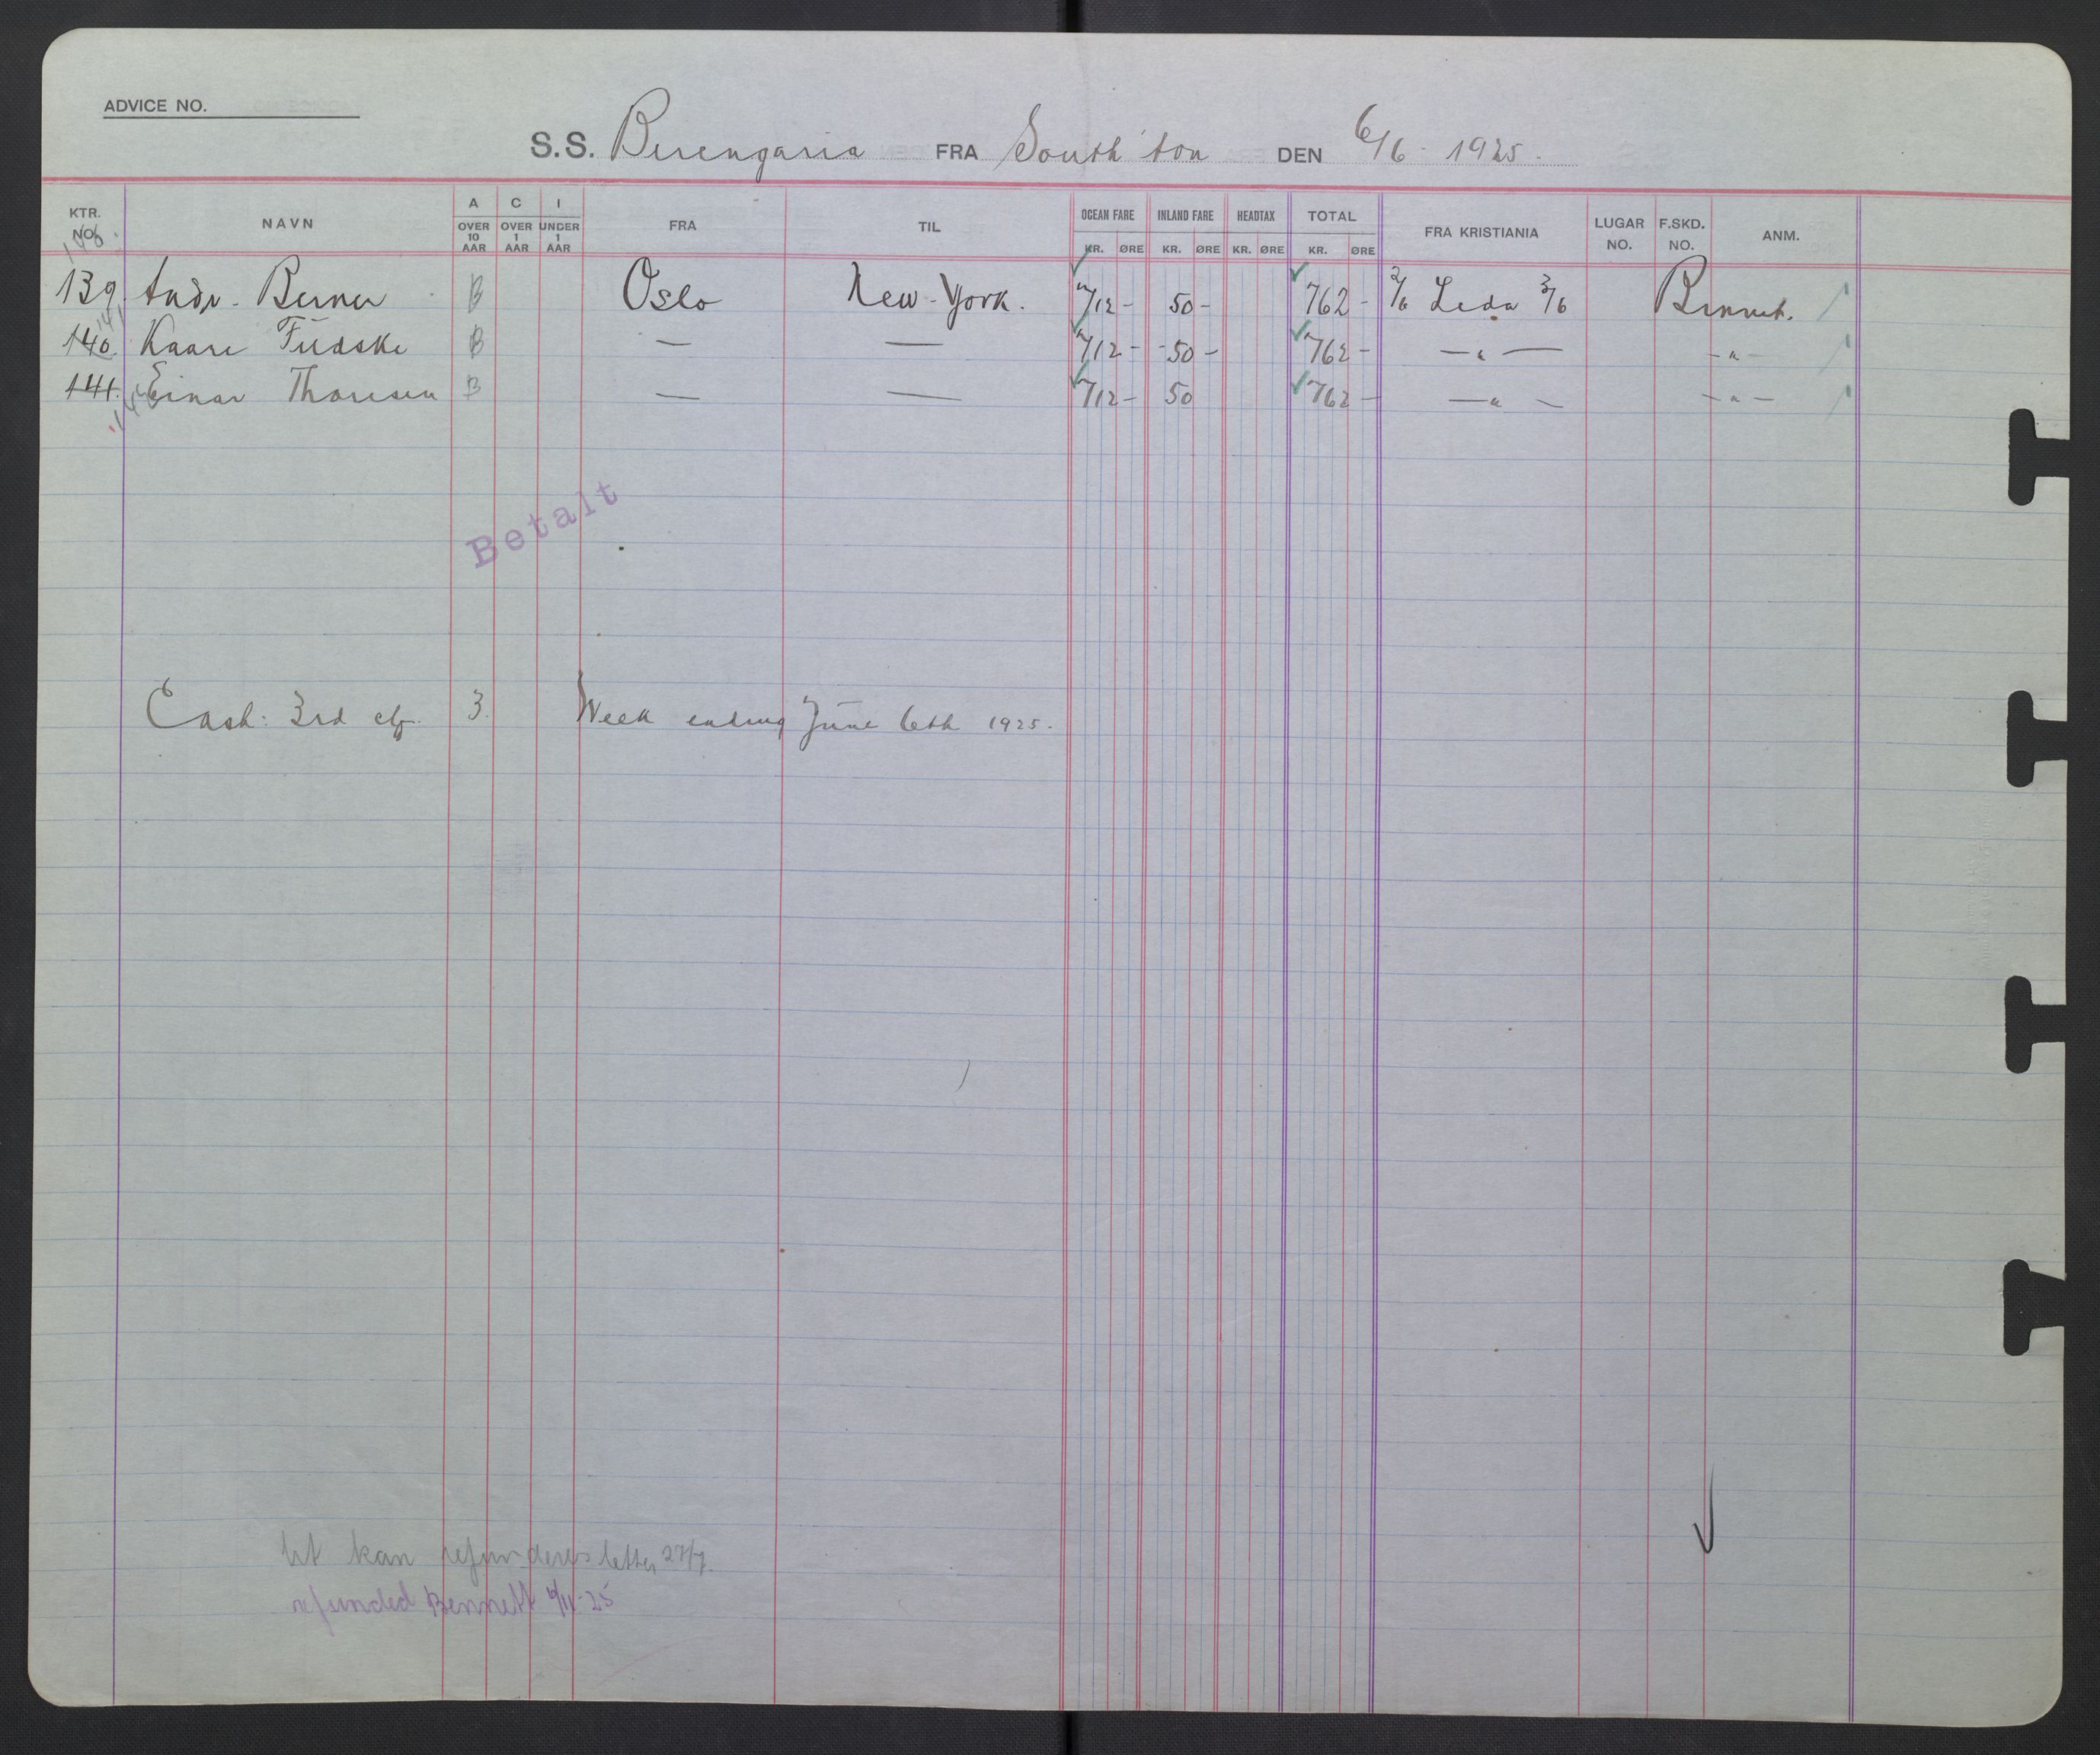 ADVICE NO.
S.S. Berengaria FRA South'ton DEN 6/6 - 1925.
KTR. NO. NAVN A OVER 10 AAR C OVER 1 AAR I UNDER 1 AAR FRA TIL OCEAN FARE KR. ØRE INLAND FARE KR. ØRE HEADTAX KR. ØRE TOTAL KR. ØRE FRA KRISTIANIA LUGAR NO. F.SKD. NO. ANM.
139. Andr. Berner B Oslo New-York. 712- 50- 762- 2/6 Leda 3/6 Bennett.
140. Kaare B — — 712- 50- 762- —„— -„-
141. Einar Thoresen B — — 712- 50 762- —„— -„-
Betalt
Cash: 3rd 3. Week ending June 6th 1925.
kan refunderes letter 27/7.
refunded Bennett 25